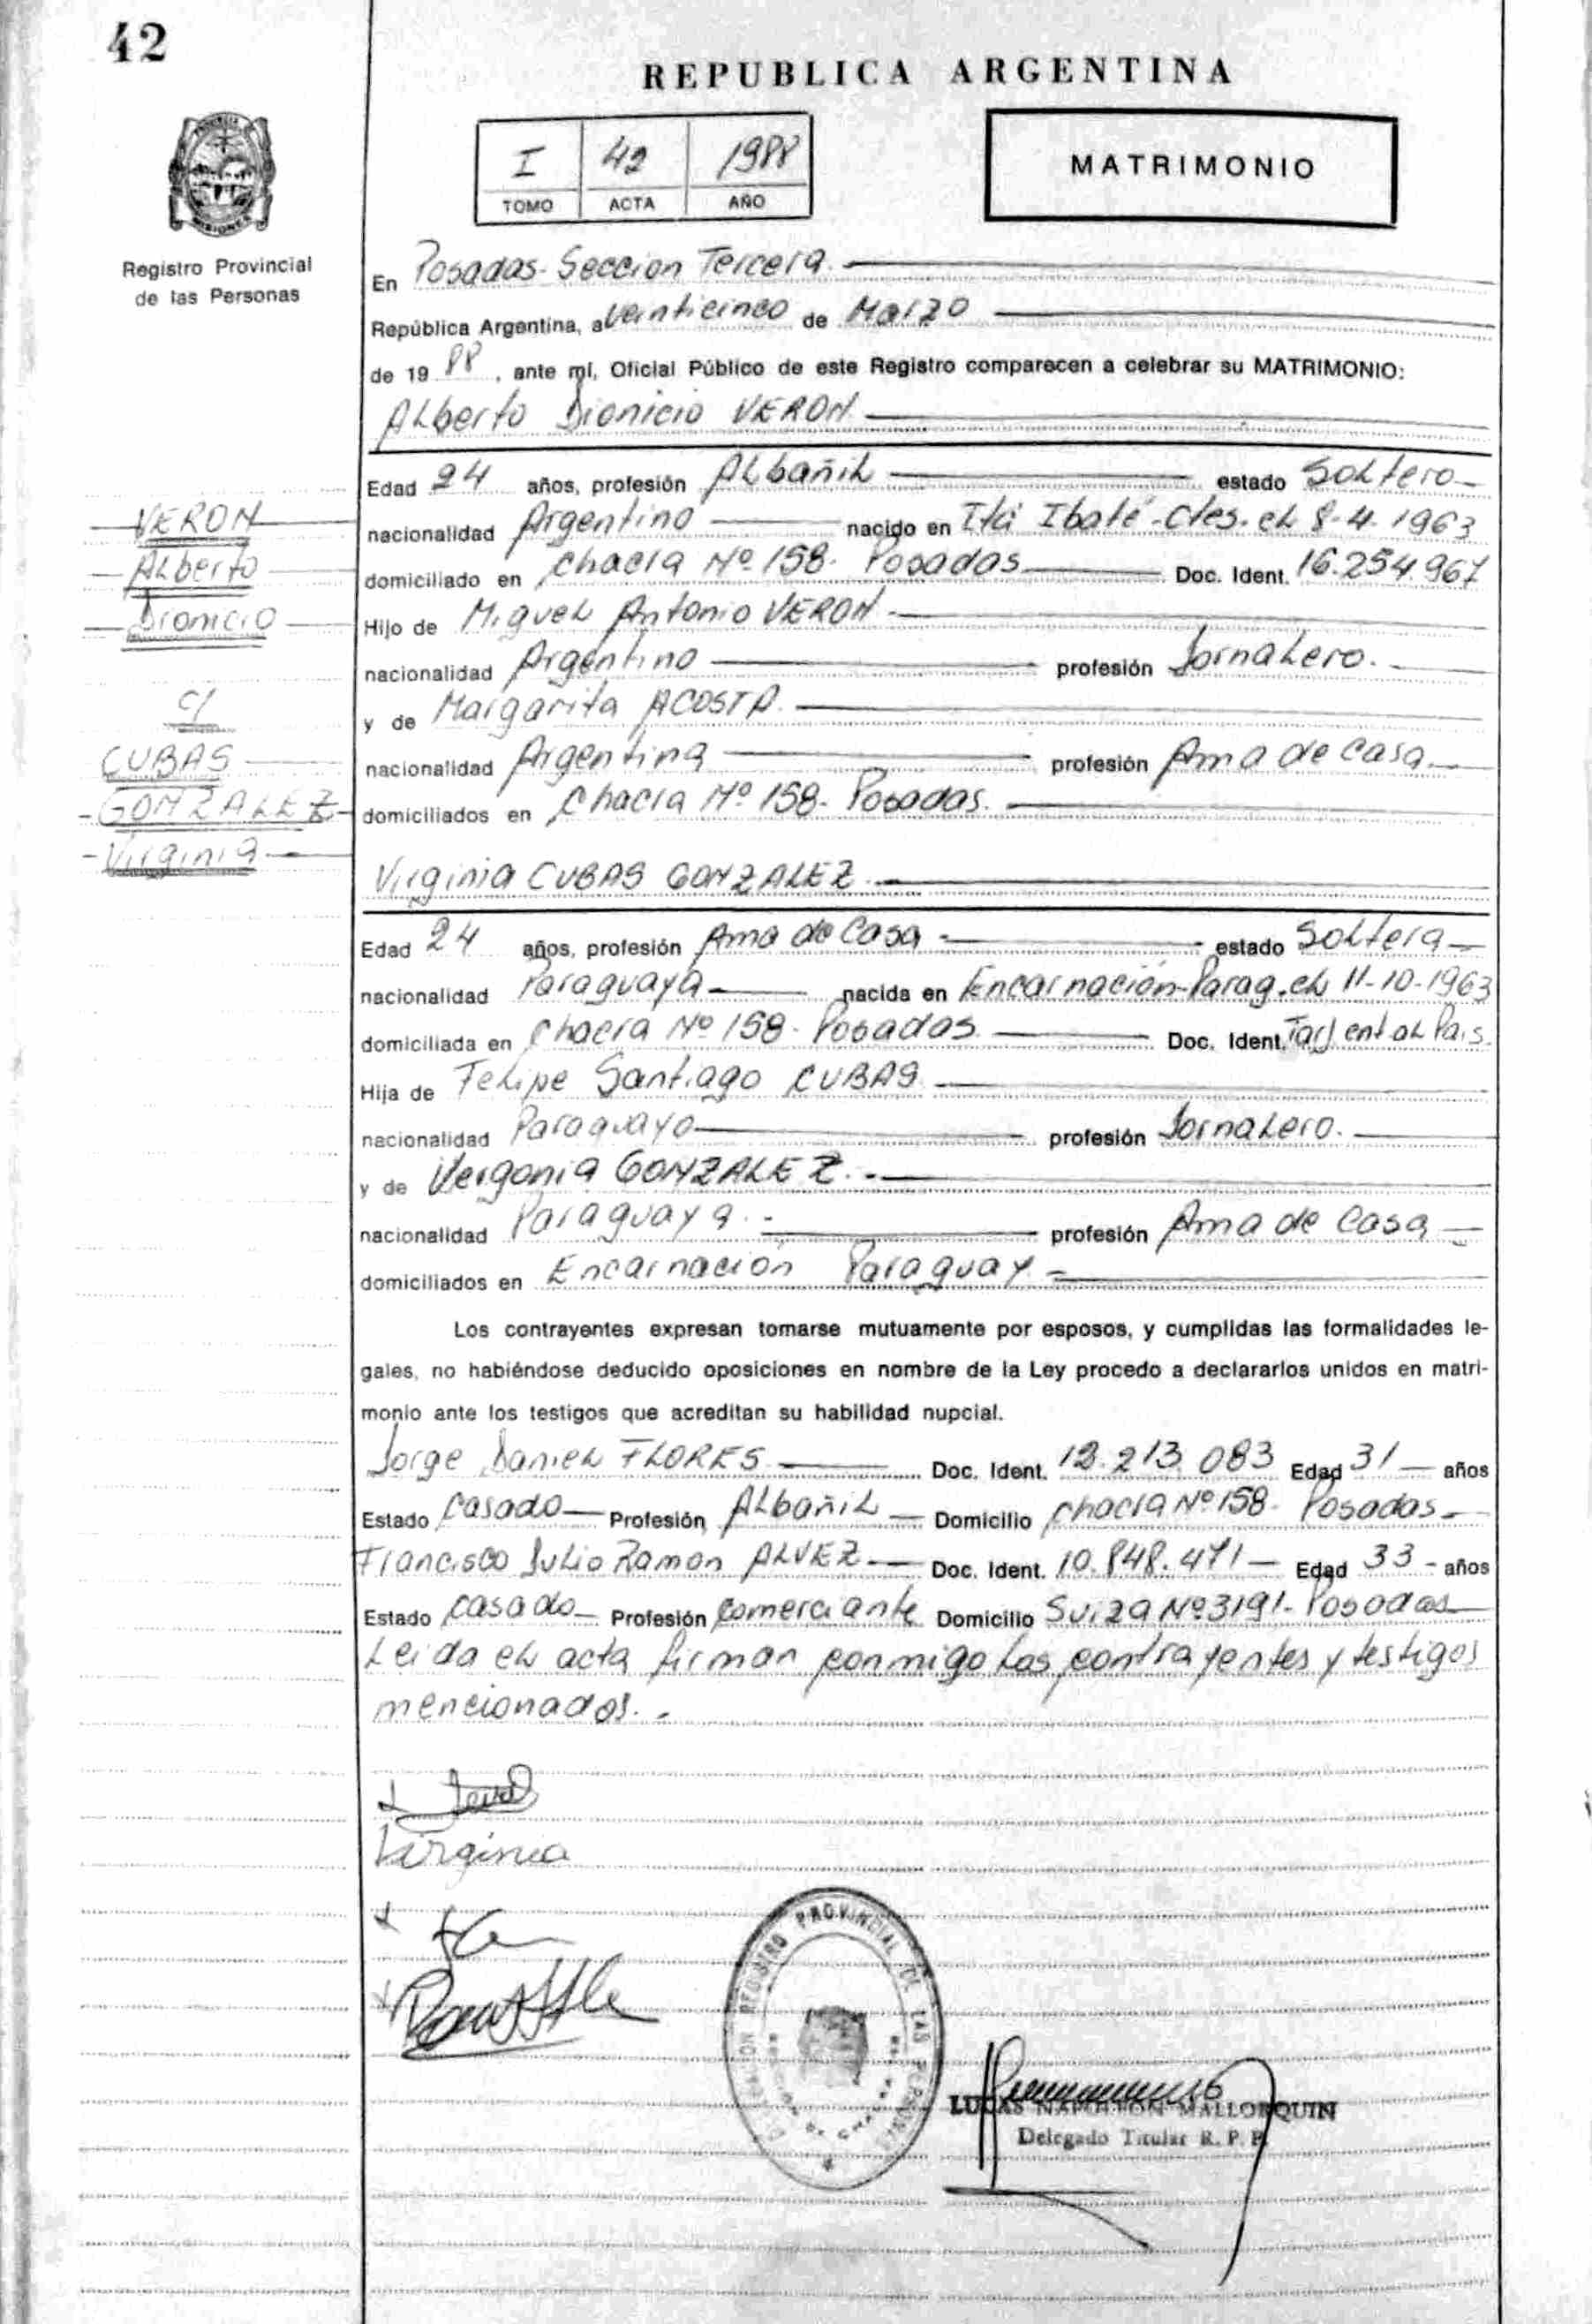 42
REPUBLICA ARGENTINA
I 42 1988
TOMO ACTA AÑO
MATRIMONIO
PROVINCIA
MISIONES
Registro Provincial
de las Personas
En Posadas- Seccion Tercera.
República Argentina, a veinticinco de Marzo
de 19 88, ante mí, Oficial Público de este Registro comparecen a celebrar su MATRIMONIO:
Alberto Dionicio VERON
Edad 24 años, profesión Albañil estado Soltero
nacionalidad Argentino nacido en Itá Ibaté-Ctes. el 8-4-1963
domiciliado en Chacra Nº 158- Posadas Doc. Ident. 16.254.967
Hijo de Miguel Antonio VERON
nacionalidad Argentino profesión Jornalero.
y de Margarita ACOSTA
nacionalidad Argentina profesión Ama de Casa
domiciliados en Chacra Nº 158- Posadas.
VERON
Alberto
Dionicio
c/
CUBAS
GONZALEZ
Virginia
Virginia CUBAS GONZALEZ
Edad 24 años, profesión Ama de Casa estado Soltera
nacionalidad Paraguaya nacida en Encarnación-Parag. el 11-10-1963
domiciliada en Chacra Nº 158- Posados Doc. Ident. Tarj ent al Pais
Hija de Felipe Santiago CUBAS
nacionalidad Paraguayo profesión Jornalero.
y de Vergonia GONZALEZ.
nacionalidad Paraguaya profesión Ama de Casa
domiciliados en Encarnación Paraguay
Los contrayentes expresan tomarse mutuamente por esposos, y cumplidas las formalidades le-
gales, no habiéndose deducido oposiciones en nombre de la Ley procedo a declararlos unidos en matri-
monio ante los testigos que acreditan su habilidad nupcial.
Jorge Daniel FLORES Doc. Ident. 13.213.083 Edad 31 años
Estado Casado Profesión Albañil Domicilio Chacra Nº 158- Posadas
Francisco Julio Ramon ALVEZ Doc. Ident. 10.848.471 Edad 33 años
Estado Casado Profesión Comerciante Domicilio Suiza Nº 3191- Posadas
Leida el acta firman conmigo los contrayentes y testigos
mencionados.
Virginia
REGISTRO PROVINCIAL DE LAS PERSONAS
LUCAS MALLORQUIN
Delegado Titular R. P. P.